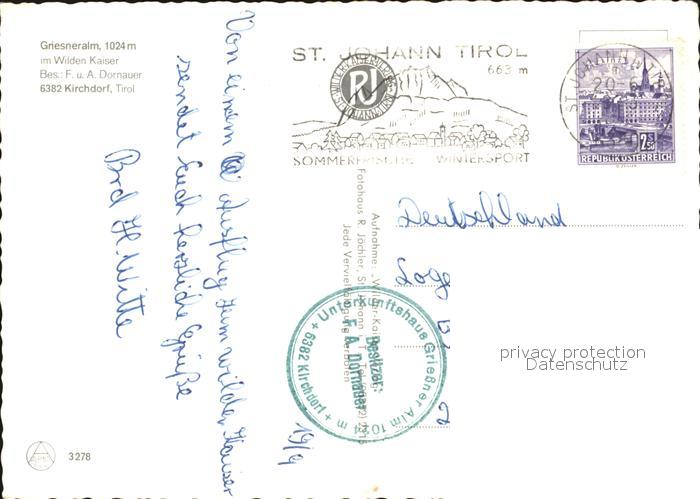 Griesneralm, 1024 m
im Wilden Kaiser
Bes.: F. u. A. Dornauer
6382 Kirchdorf, Tirol
ST. JOHANN TIROL
663 m
SOMMERFRISCHE WINTERSPORT
ST. JOHANN IN
20
2S50
REPUBLIK ÖSTERREICH
Von einem Ausflug zum wilden Kaiser
sendet Euch herzliche Grüße
Brd H. Witte
19/9
Aufnahme:
Fotohaus R. Jöchler, St. Johann
Jede Vervielfältigung verboten
Unterkunftshaus Grießner Alm 1024 m + 6382 Kirchdorf +
Besitzer:
F. A. Dornauer
Deutschland
privacy protection
Datenschutz
3278